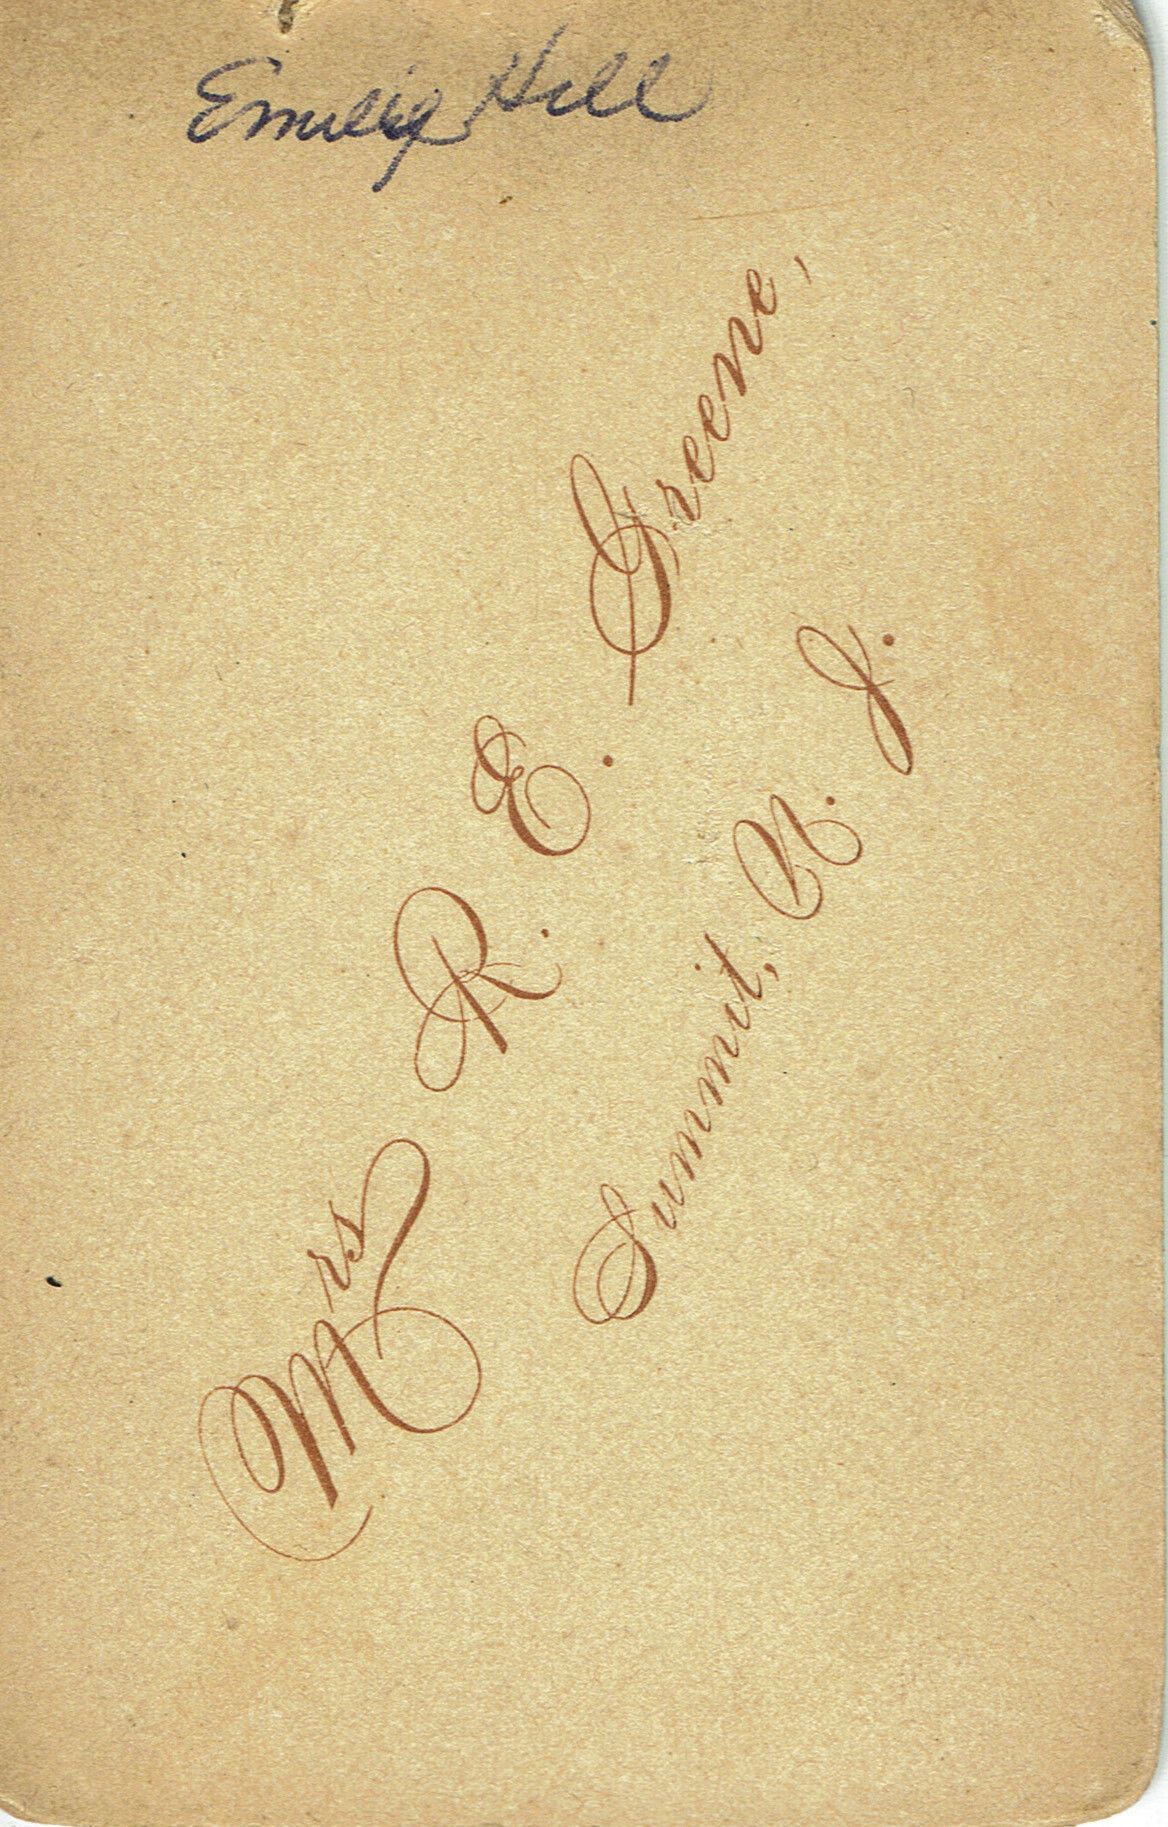 Emily Hill
Mrs R. E. Greene,
Summit, N. J.